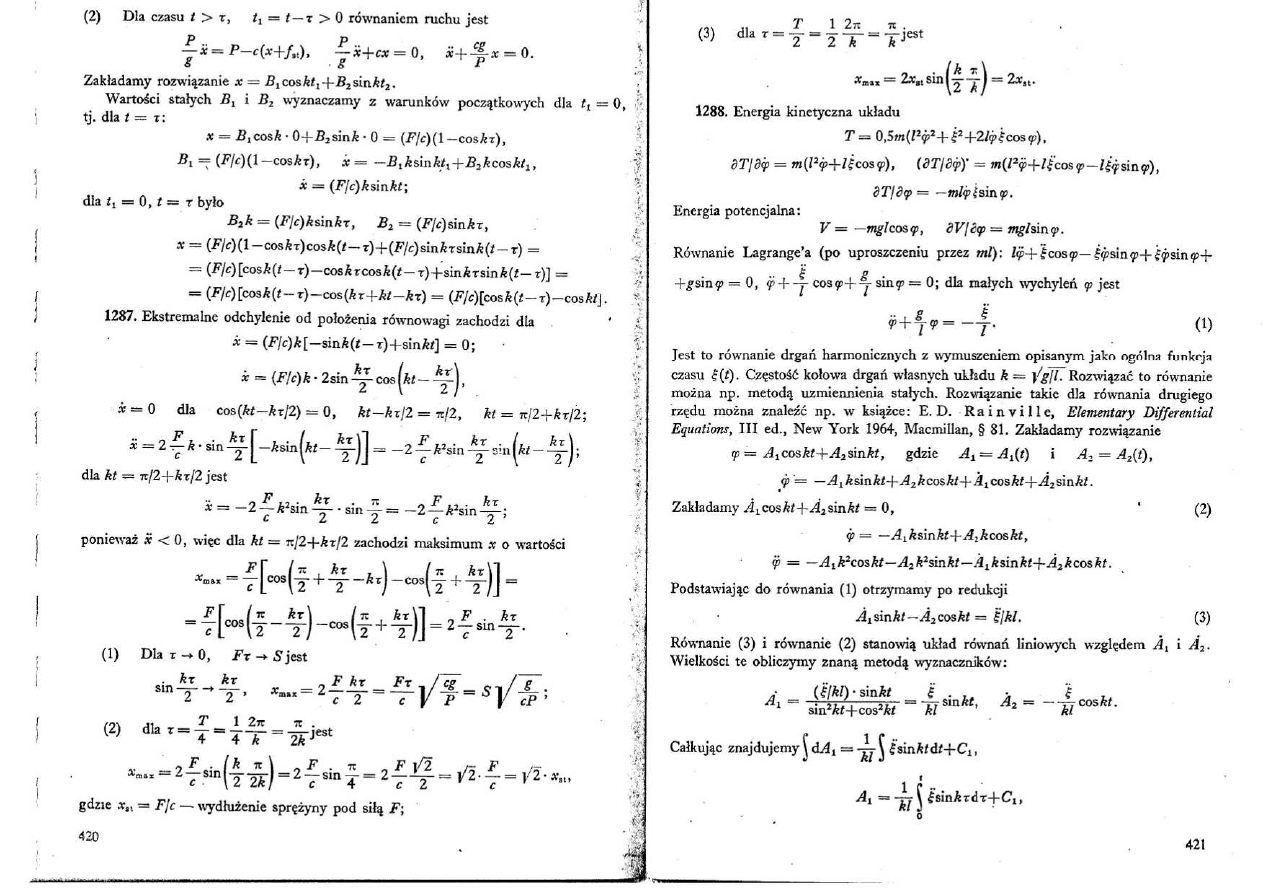 (2) Dla czasu t > τ, t₁ = t−τ > 0 równaniem ruchu jest
P/g ẍ = P−c(x+fₛₜ), P/g ẍ+cx = 0, ẍ+ cg/P x = 0.
Zakładamy rozwiązanie x = B₁coskt₁+B₂sinkt₂.
Wartości stałych B₁ i B₂ wyznaczamy z warunków początkowych dla t₁ = 0,
tj. dla t = τ:
x = B₁cosk · 0+B₂sink · 0 = (F/c)(1−coskτ),
B₁ = (F/c)(1−coskτ), ẋ = −B₁ksinkt₁+B₂kcoskt₁,
ẋ = (F/c)ksinkt;
dla t₁ = 0, t = τ było
B₂k = (F/c)ksinkτ, B₂ = (F/c)sinkτ,
x = (F/c)(1−coskτ)cosk(t−τ)+(F/c)sinkτsink(t−τ) =
= (F/c)[cosk(t−τ)−coskτcosk(t−τ)+sinkτsink(t−τ)] =
= (F/c)[cosk(t−τ)−cos(kτ+kt−kτ) = (F/c)[cosk(t−τ)−coskt].
1287. Ekstremalne odchylenie od położenia równowagi zachodzi dla
ẋ = (F/c)k[−sink(t−τ)+sinkt] = 0;
ẋ = (F/c)k · 2sin kτ/2 cos(kt− kτ/2),
ẋ = 0 dla cos(kt−kτ/2) = 0, kt−kτ/2 = π/2, kt = π/2+kτ/2;
ẍ = 2 F/c k · sin kτ/2 [−ksin(kt− kτ/2)] = −2 F/c k²sin kτ/2 sin(kt− kτ/2);
dla kt = π/2+kτ/2 jest
ẍ = −2 F/c k²sin kτ/2 · sin π/2 = −2 F/c k²sin kτ/2;
ponieważ ẍ < 0, więc dla kt = π/2+kτ/2 zachodzi maksimum x o wartości
xₘₐₓ = F/c [cos(π/2 + kτ/2 −kτ)−cos(π/2 + kτ/2)] =
= F/c [cos(π/2 − kτ/2)−cos(π/2 + kτ/2)] = 2 F/c sin kτ/2.
(1) Dla τ → 0, Fτ → S jest
sin kτ/2 → kτ/2, xₘₐₓ = 2 F/c kτ/2 = Fτ/c √(cg/P) = S√(g/cP);
(2) dla τ = T/4 = 1/4 2π/k = π/2k jest
xₘₐₓ = 2 F/c sin(k/2 π/2k) = 2 F/c sin π/4 = 2 F/c √2/2 = √2 · F/c = √2 · xₛₜ,
gdzie xₛₜ = F/c — wydłużenie sprężyny pod siłą F;
420
(3) dla τ = T/2 = 1/2 2π/k = π/k jest
xₘₐₓ = 2xₛₜ sin(k/2 π/k) = 2xₛₜ.
1288. Energia kinetyczna układu
T = 0,5m(l²φ̇²+ξ̇²+2lφ̇ξ̇cosφ),
∂T/∂φ̇ = m(l²φ̇+lξ̇cosφ), (∂T/∂φ̇)˙ = m(l²φ̈+lξ̈cosφ−lξ̇φ̇sinφ),
∂T/∂φ = −mlφ̇ξ̇sinφ.
Energia potencjalna:
V = −mglcosφ, ∂V/∂φ = mglsinφ.
Równanie Lagrange'a (po uproszczeniu przez ml): lφ̈+ξ̈cosφ−ξ̇φ̇sinφ+ξ̇φ̇sinφ+
+gsinφ = 0, φ̈+ ξ̈/l cosφ+ g/l sinφ = 0; dla małych wychyleń φ jest
φ̈+ g/l φ = − ξ̈/l. (1)
Jest to równanie drgań harmonicznych z wymuszeniem opisanym jako ogólna funkcja
czasu ξ(t). Częstość kołowa drgań własnych układu k = √g/l. Rozwiązać to równanie
można np. metodą uzmiennienia stałych. Rozwiązanie takie dla równania drugiego
rzędu można znaleźć np. w książce: E. D. Rainville, Elementary Differential
Equations, III ed., New York 1964, Macmillan, § 81. Zakładamy rozwiązanie
φ = A₁coskt+A₂sinkt, gdzie A₁ = A₁(t) i A₂ = A₂(t),
φ̇ = −A₁ksinkt+A₂kcoskt+Ȧ₁coskt+Ȧ₂sinkt.
Zakładamy Ȧ₁coskt+Ȧ₂sinkt = 0, (2)
φ̇ = −A₁ksinkt+A₂kcoskt,
φ̈ = −A₁k²coskt−A₂k²sinkt−Ȧ₁ksinkt+Ȧ₂kcoskt.
Podstawiając do równania (1) otrzymamy po redukcji
Ȧ₁sinkt−Ȧ₂coskt = ξ̈/kl. (3)
Równanie (3) i równanie (2) stanowią układ równań liniowych względem Ȧ₁ i Ȧ₂.
Wielkości te obliczymy znaną metodą wyznaczników:
Ȧ₁ = (ξ̈/kl) · sinkt / sin²kt+cos²kt = ξ̈/kl sinkt, Ȧ₂ = − ξ̈/kl coskt.
Całkując znajdujemy ∫dA₁ = 1/kl ∫ξ̈sinktdt+C₁,
A₁ = 1/kl ∫₀ᵗ ξ̈sinkτdτ+C₁,
421